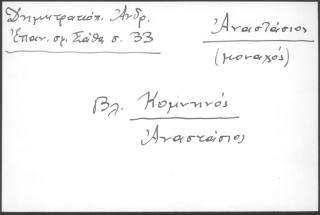 Δημητρακόπ. Ἀνδρ.
Ἐπαν. σμ. Σάθα σ. 33
Ἀναστάσιος
(μοναχός)
Βλ. Κομνηνός
Ἀναστάσιος